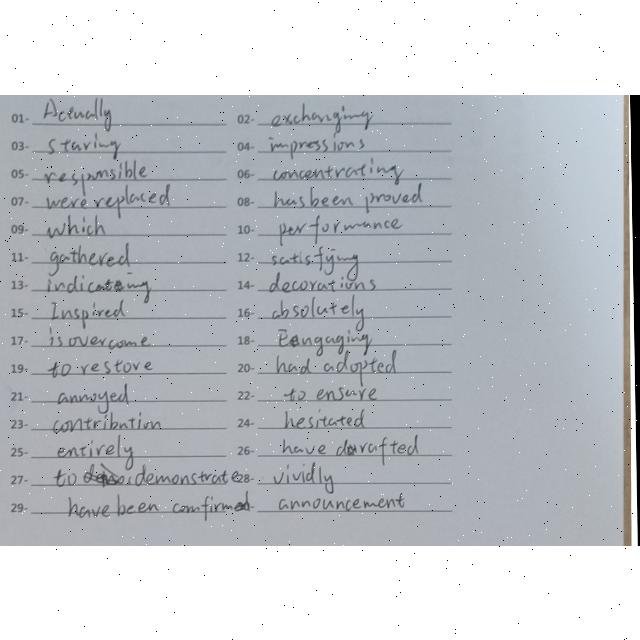 01- Actually 02- exchanging
03- staring 04- impressions
05- responsible 06- concentrating
07- were replaced 08- has been proved
09- which 10- performance
11- gathered 12- satisfying
13- indicating 14- decorations
15- Inspired 16- absolutely
17- is overcome 18- Engaging
19- to restore 20- had adopted
21- annoyed 22- to ensure
23- contribution 24- hesitated
25- entirely 26- have drafted
27- to demonstrate 28- vividly
29- have been confirmed announcement